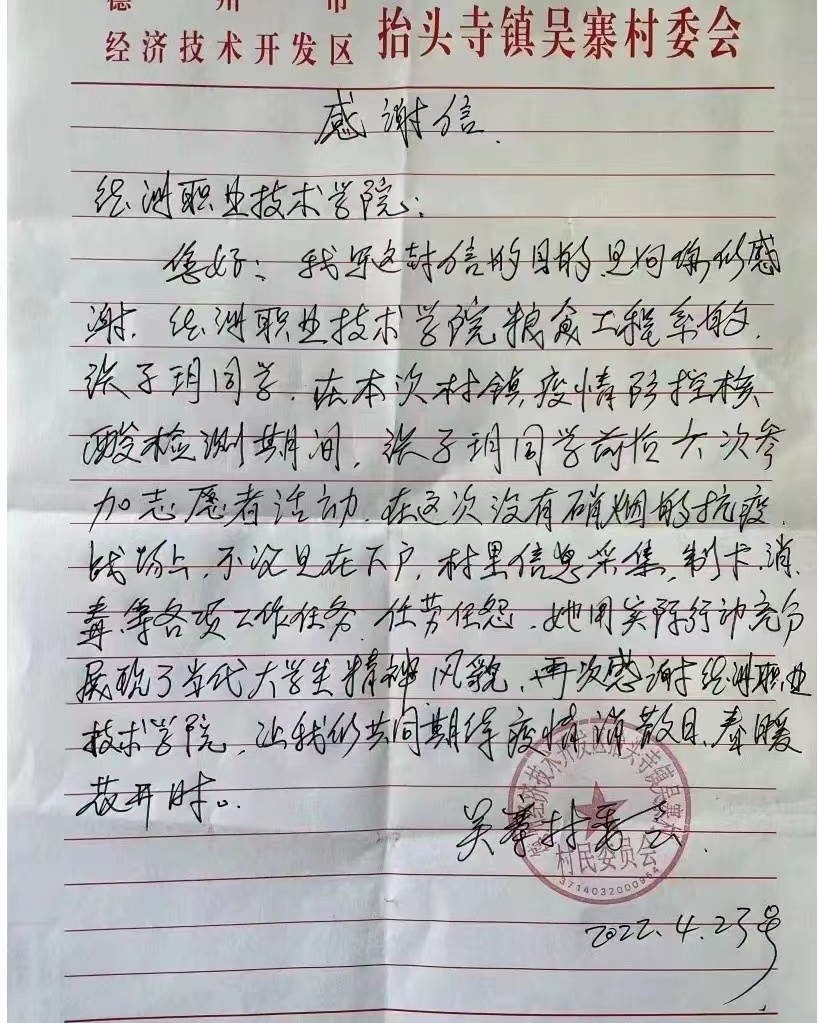 德州市
经济技术开发区 抬头寺镇吴寨村委会
感谢信.
德洲职业技术学院:
您好: 我写这封信的目的是向你们感
谢. 德洲职业技术学院粮食工程系
张子玥同学. 在本次村镇疫情防控核
酸检测期间, 张子玥同学前后六次参
加志愿者活动. 在这次没有硝烟的抗疫
战场上, 不论是在下户, 村里信息采集, 制卡, 消
毒等各项工作任务, 任劳任怨. 她用实际行动充分
展现了当代大学生精神风貌, 再次感谢德洲职业
技术学院, 让我们共同期待疫情消散日, 春暖
花开时。
吴寨村委会.
经济技术开发区抬头寺镇吴寨村
村民委员会
3714032000954
2022.4.23号